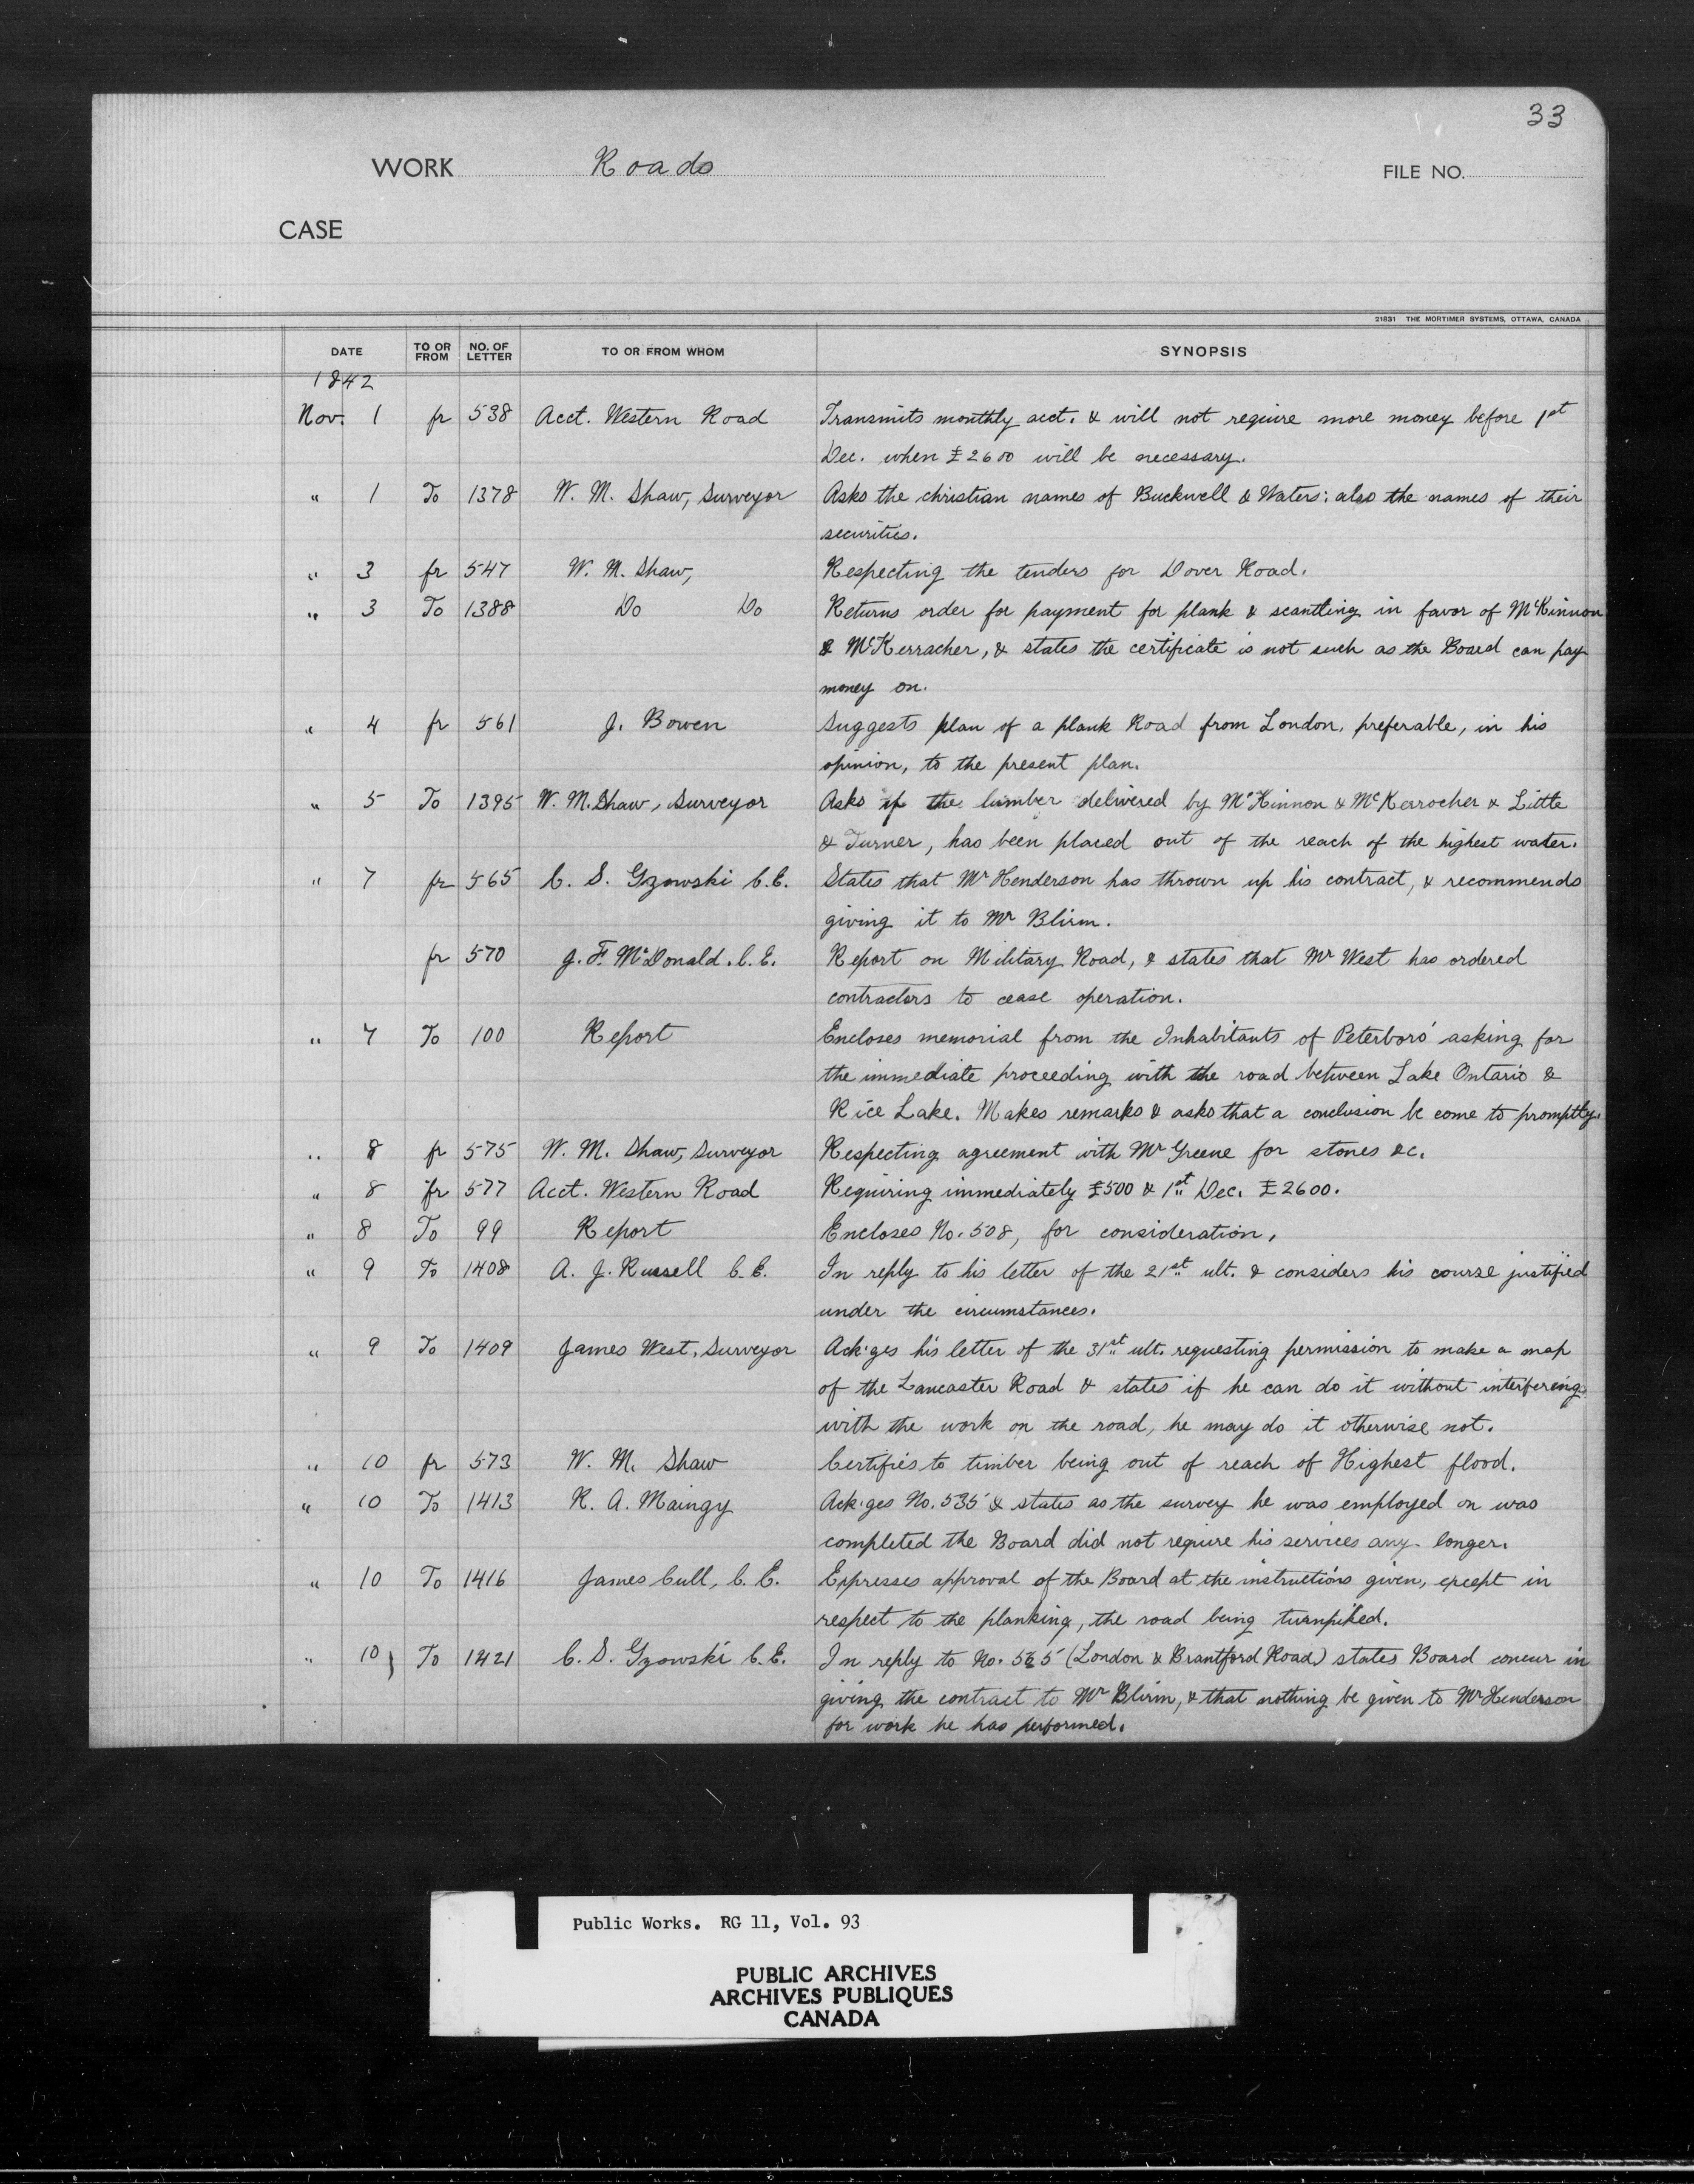 33
WORK Roads FILE NO.
CASE
21831 THE MORTIMER SYSTEMS, OTTAWA, CANADA
DATE TO OR FROM NO. OF LETTER TO OR FROM WHOM SYNOPSIS
1842
Nov. 1 fr 538 Acct. Western Road Transmits monthly acct. & will not require more money before 1st
Dec. when £2600 will be necessary.
" 1 To 1378 W. M. Shaw, Surveyor Asks the christian names of Buckwell & Waters: also the names of their
securities.
" 3 fr 547 W. M. Shaw, Respecting the tenders for Dover Road.
" 3 To 1388 Do Do Returns order for payment for plank & scantling in favor of McKinnon
& McKerracher, & states the certificate is not such as the Board can pay
money on.
" 4 fr 561 J. Bowen Suggests plan of a plank Road from London, preferable, in his
opinion, to the present plan.
" 5 To 1395 W. M. Shaw, Surveyor Asks if the lumber delivered by McKinnon & McKerrocher & Little
& Turner, has been placed out of the reach of the highest water.
" 7 fr 565 C. S. Gzowski C.E. States that Mr Henderson has thrown up his contract, & recommends
giving it to Mr Blirm.
fr 570 J. F. McDonald. C.E. Report on Military Road, & states that Mr West has ordered
contractors to cease operation.
" 7 To 100 Report Encloses memorial from the Inhabitants of Peterboro' asking for
the immediate proceeding with the road between Lake Ontario &
Rice Lake. Makes remarks & asks that a conclusion be come to promptly.
" 8 fr 575 W. M. Shaw, Surveyor Respecting agreement with Mr Greene for stones &c.
" 8 fr 577 Acct. Western Road Requiring immediately £500 & 1st Dec. £2600.
" 8 To 99 Report Encloses No. 508, for consideration,
" 9 To 1408 A. J. Russell C.E. In reply to his letter of the 21st ult. & considers his course justified
under the circumstances.
" 9 To 1409 James West, Surveyor Ack'ges his letter of the 31st ult. requesting permission to make a map
of the Lancaster Road & states if he can do it without interfering
with the work on the road, he may do it otherwise not.
" 10 fr 573 W. M. Shaw Certifies to timber being out of reach of Highest flood.
" 10 To 1413 R. A. Maingy Ack'ges No. 535 & states as the survey he was employed on was
completed the Board did not require his services any longer.
" 10 To 1416 James Cull, C.E. Expresses approval of the Board at the instructions given, except in
respect to the planking, the road being turnpiked.
" 10} To 1421 C. S. Gzowski C.E. In reply to No. 565 (London & Brantford Road) states Board concur in
giving the contract to Mr Blirm, & that nothing be given to Mr Henderson
for work he has performed.
Public Works. RG 11, Vol. 93
PUBLIC ARCHIVES
ARCHIVES PUBLIQUES
CANADA